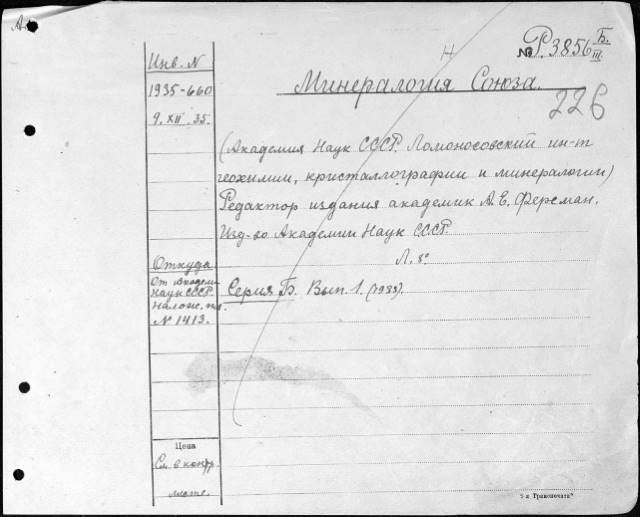 № Р. 3856 Б. III.
Н
Минералогия Союза.
226
Инв. N
1935-660
9. XII. 35.
(Академия Наук СССР. Ломоносовский ин-т
геохимии, кристаллографии и минералогии)
Редактор издания академик А. Е. Ферсман.
Изд-во Академии Наук СССР.
Л. 8°
Откуда
От Академи
Наук СССР.
Налож. пл.
N 1413.
Серия Б. Вып. 1. (1935).
Цена
См. в контр.
листе.